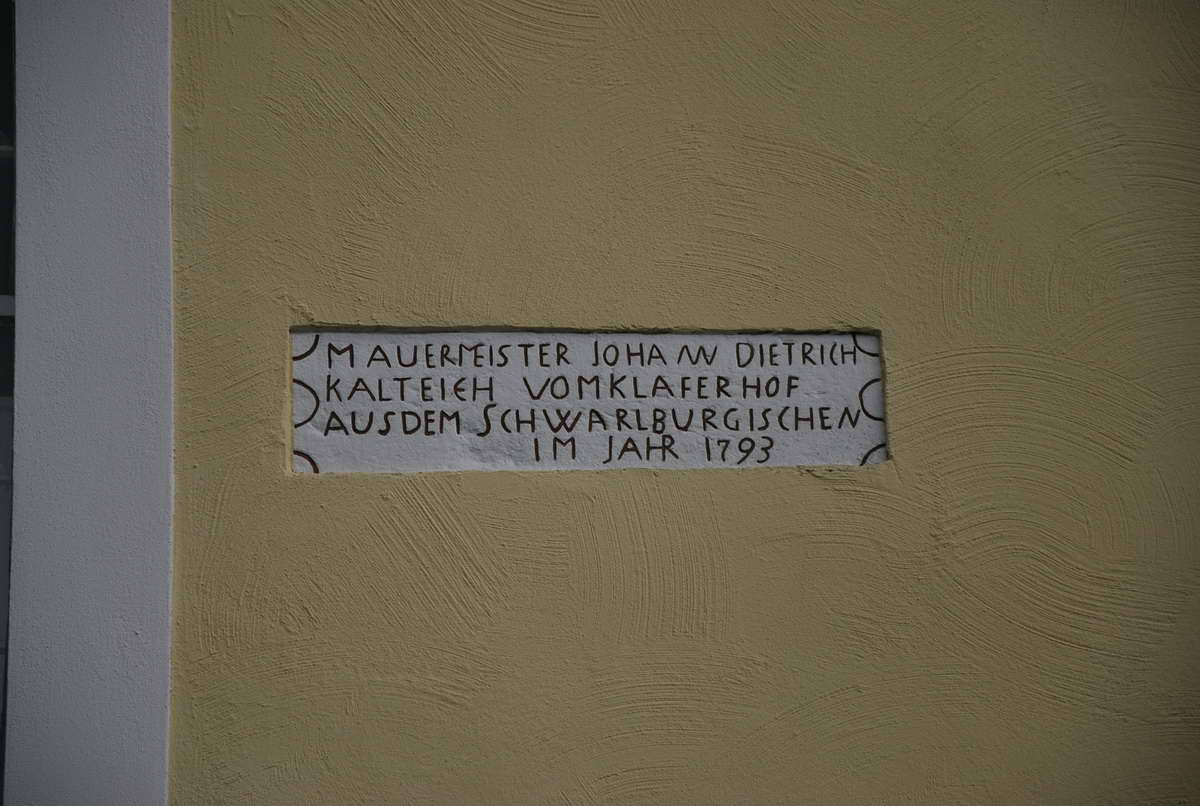 MAUERMEISTER JOHANN DIETRICH
KALTEICH VOMKLAFERHOF
AUSDEM SCHWARLBURGISCHEN
IM JAHR 1793